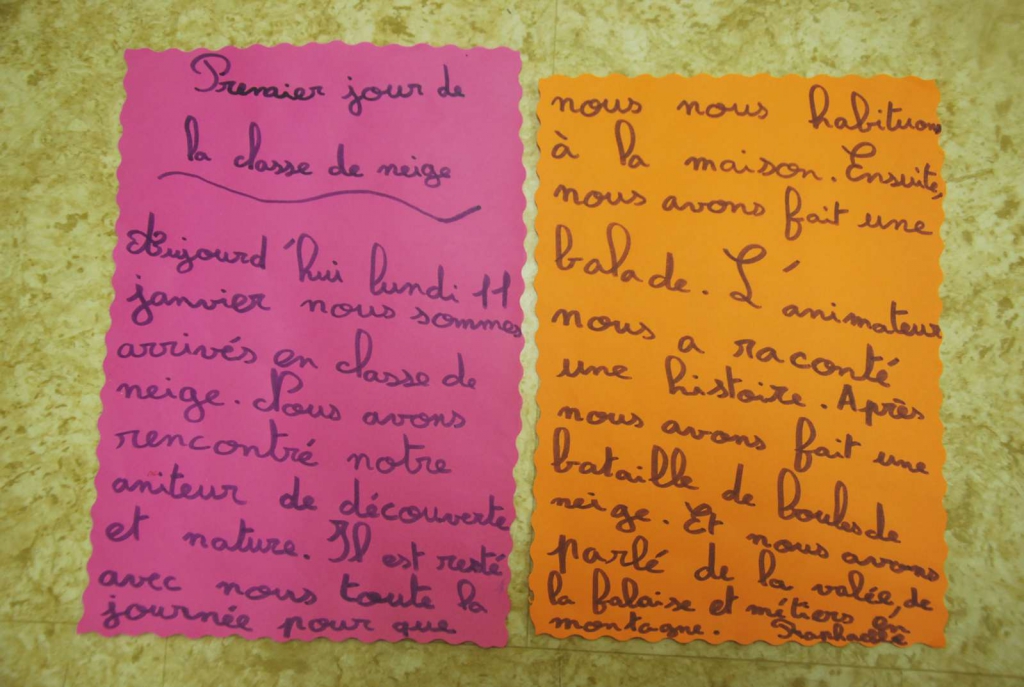 Premier jour de
la classe de neige
Aujourd'hui lundi 11
janvier nous sommes
arrivés en classe de
neige. Nous avons
rencontré notre
aniteur de découverte
et nature. Il est resté
avec nous toute la
journée pour que
nous nous habituons
à la maison. Ensuite,
nous avons fait une
balade. L'animateur
nous a raconté
une histoire. Après
nous avons fait une
bataille de boules de
neige. Et nous avons
parlé de la valée, de
la falaise et métiers en
montagne.